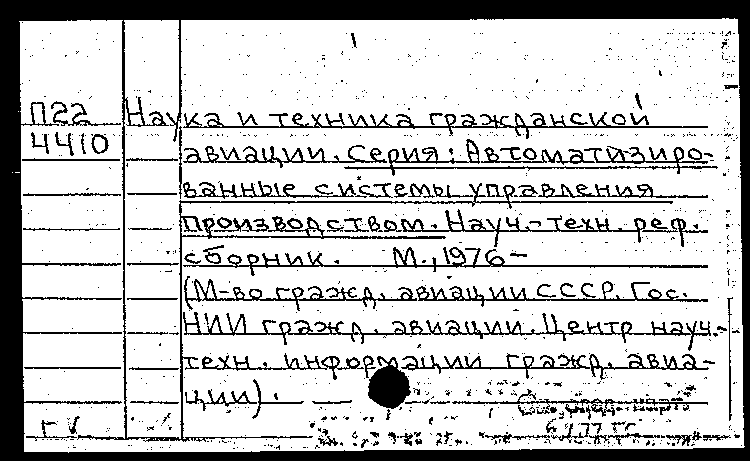 П22 Наука и техника гражданской
4410 авиации. Серия: Автоматизиро-
ванные системы управления
производством. Науч.-техн. реф.
сборник. М., 1976-
(М-во гражд. авиации СССР. Гос.
НИИ гражд. авиации. Центр науч.-
техн. информации гражд. авиа-
ции).